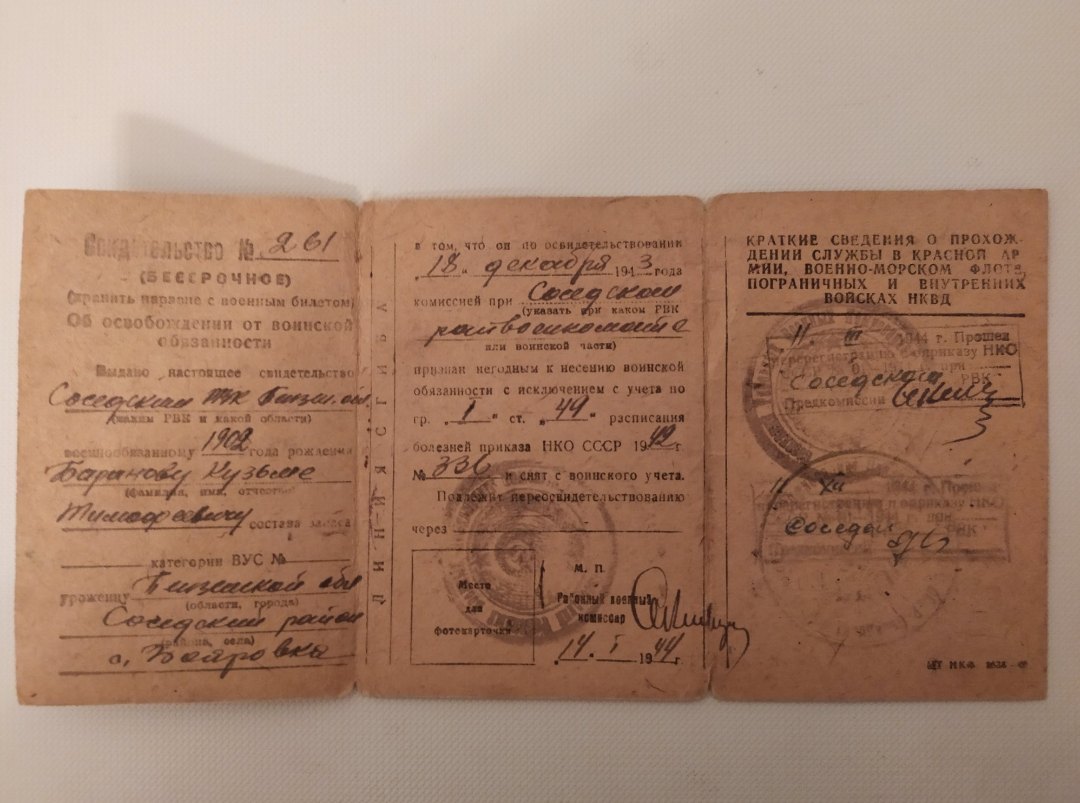 Свидетельство № 261
(БЕССРОЧНОЕ)
(хранить наравне с военным билетом)
Об освобождении от воинской
обязанности
Выдано настоящее свидетельство
Соседским
(каким РВК и какой области)
военнообязанному 1902 года рождения
Баранову Кузьме
(фамилия, имя, отчество)
Тимофеевичу состава запаса
категории ВУС №
уроженцу обл
(области, города)
Соседский район
(района, села)
с.
ЛИНИЯ СГИБА
в том, что он по освидетельствовании
"18" декабря 1943 года
комиссией при Соседском
(указать при каком РВК
райвоенкомате
или воинской части)
признан негодным к несению воинской
обязанности с исключением с учета по
гр. "I" ст. "44" расписания
болезней приказа НКО СССР 1942 г.
№ 336 и снят с воинского учета.
Подлежит переосвидетельствованию
через
Место
для
фотокарточки
М. П.
Районный военный
комиссар
"14" I 1944 г.
КРАТКИЕ СВЕДЕНИЯ О ПРОХОЖ-
ДЕНИИ СЛУЖБЫ В КРАСНОЙ АР
МИИ, ВОЕННО-МОРСКОМ ФЛОТЕ,
ПОГРАНИЧНЫХ И ВНУТРЕННИХ
ВОЙСКАХ НКВД
11 III 1944 г. Прошел
перерегистрацию по приказу НКО
при
Соседском РВК
Предкомиссии
11 XII 1944 г.
РВК
Предкомиссии